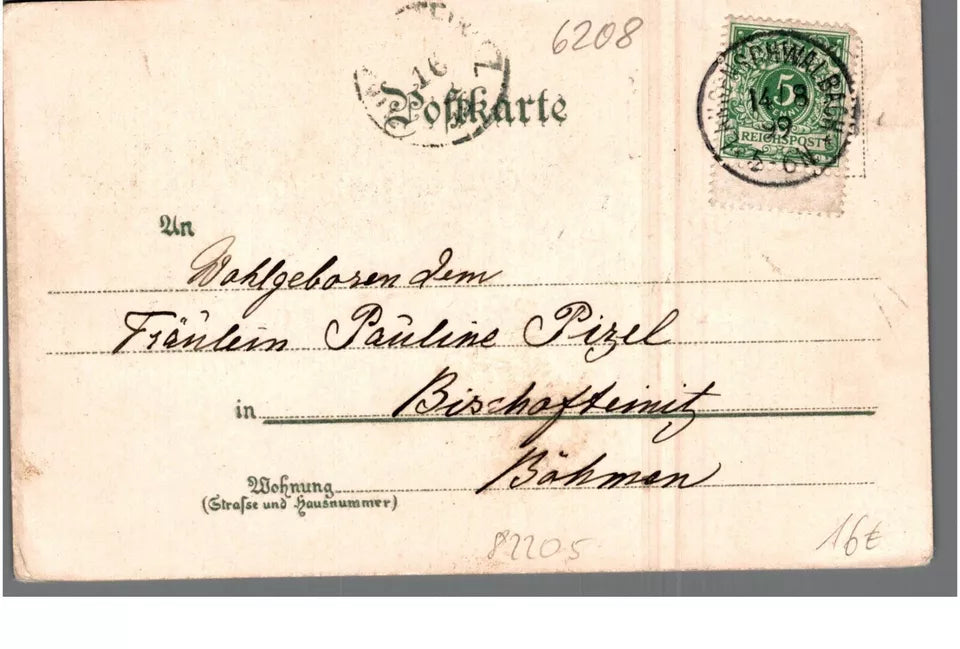 6208
Postkarte
16
LANGENSCHWALBACH
5
14 8
99
5-6N
REICHSPOST
An
Wohlgeboren dem
Fräulein Pauline Pizel
in Bischofteinitz
Böhmen
Wohnung
(Straße und Hausnummer)
82205
16€